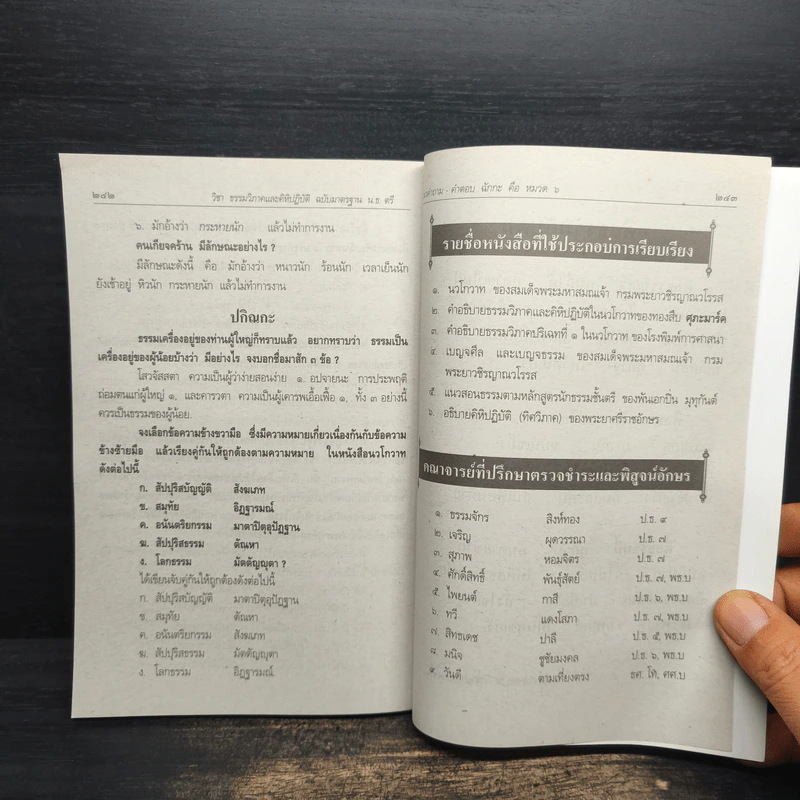 ๒๔๒ วิชา ธรรมวิภาคและคิหิปฏิบัติ ฉบับมาตรฐาน น.ธ. ตรี
๖. มักอ้างว่า กระหายนัก แล้วไม่ทำการงาน
คนเกียจคร้าน มีลักษณะอย่างไร ?
มีลักษณะดังนี้ คือ มักอ้างว่า หนาวนัก ร้อนนัก เวลาเย็นนัก
ยังเช้าอยู่ หิวนัก กระหายนัก แล้วไม่ทำการงาน
ปกิณกะ
ธรรมเครื่องอยู่ของท่านผู้ใหญ่ก็ทราบแล้ว อยากทราบว่า ธรรมเป็น
เครื่องอยู่ของผู้น้อยบ้างว่า มีอย่างไร จงบอกชื่อมาสัก ๓ ข้อ ?
โสวจัสสตา ความเป็นผู้ว่าง่ายสอนง่าย ๑. อปจายนะ การประพฤติ
ถ่อมตนแก่ผู้ใหญ่ ๑, และคารวตา ความเป็นผู้เคารพเอื้อเฟื้อ ๑, ทั้ง ๓ อย่างนี้
ควรเป็นธรรมของผู้น้อย.
จงเลือกข้อความข้างขวามือ ซึ่งมีความหมายเกี่ยวเนื่องกันกับข้อความ
ข้างซ้ายมือ แล้วเรียงคู่กันให้ถูกต้องตามความหมาย ในหนังสือนวโกวาท
ดังต่อไปนี้
ก. สัปปุริสบัญญัติ สังฆเภท
ข. สมุทัย อิฏฐารมณ์
ค. อนันตริยกรรม มาตาปิตุอุปัฏฐาน
ฆ. สัปปุริสธรรม ตัณหา
ง. โลกธรรม มัตตัญญุตา ?
ได้เขียนจับคู่กันให้ถูกต้องดังต่อไปนี้
ก. สัปปุริสบัญญัติ มาตาปิตุอุปัฏฐาน
ข. สมุทัย ตัณหา
ค. อนันตริยกรรม สังฆเภท
ฆ. สัปปุริสธรรม มัตตัญญุตา
ง. โลกธรรม อิฏฐารมณ์
- คำตอบ ฉักกะ คือ หมวด ๖ ๒๔๓
รายชื่อหนังสือที่ใช้ประกอบการเรียบเรียง
๑. นวโกวาท ของสมเด็จพระมหาสมณเจ้า กรมพระยาวชิรญาณวโรรส
๒. คำอธิบายธรรมวิภาคและคิหิปฏิบัติในนวโกวาทของทองสืบ ศุภะมาร์ค
๓. คำอธิบายธรรมวิภาคปริเฉทที่ ๑ ในนวโกวาท ของโรงพิมพ์การศาสนา
๔. เบญจศีล และเบญจธรรม ของสมเด็จพระมหาสมณเจ้า กรม
พระยาวชิรญาณวโรรส
๕. แนวสอนธรรมตามหลักสูตรนักธรรมชั้นตรี ของพันเอกปิ่น มุทุกันต์
๖. อธิบายคิหิปฏิบัติ (ทิศวิภาค) ของพระยาศรีราชอักษร
คณาจารย์ที่ปรึกษาตรวจชำระและพิสูจน์อักษร
๑. ธรรมจักร สิงห์ทอง ป.ธ. ๙
๒. เจริญ ผุดวรรณา ป.ธ. ๗
๓. สุภาพ หอมจิตร ป.ธ. ๗
๔. ศักดิ์สิทธิ์ พันธุ์สัตย์ ป.ธ. ๗, พธ.บ
๕. ไพยนต์ กาสี ป.ธ. ๖, พธ.บ
๖. ทวี แดงโสภา ป.ธ. ๗, พธ.บ
๗. สิทธเดช ปาลี ป.ธ. ๕, พธ.บ
๘. มนิจ ชูชัยมงคล ป.ธ. ๖, พธ.บ
๙. วันดี ตามเที่ยงตรง ธศ. โท, ศศ.บ